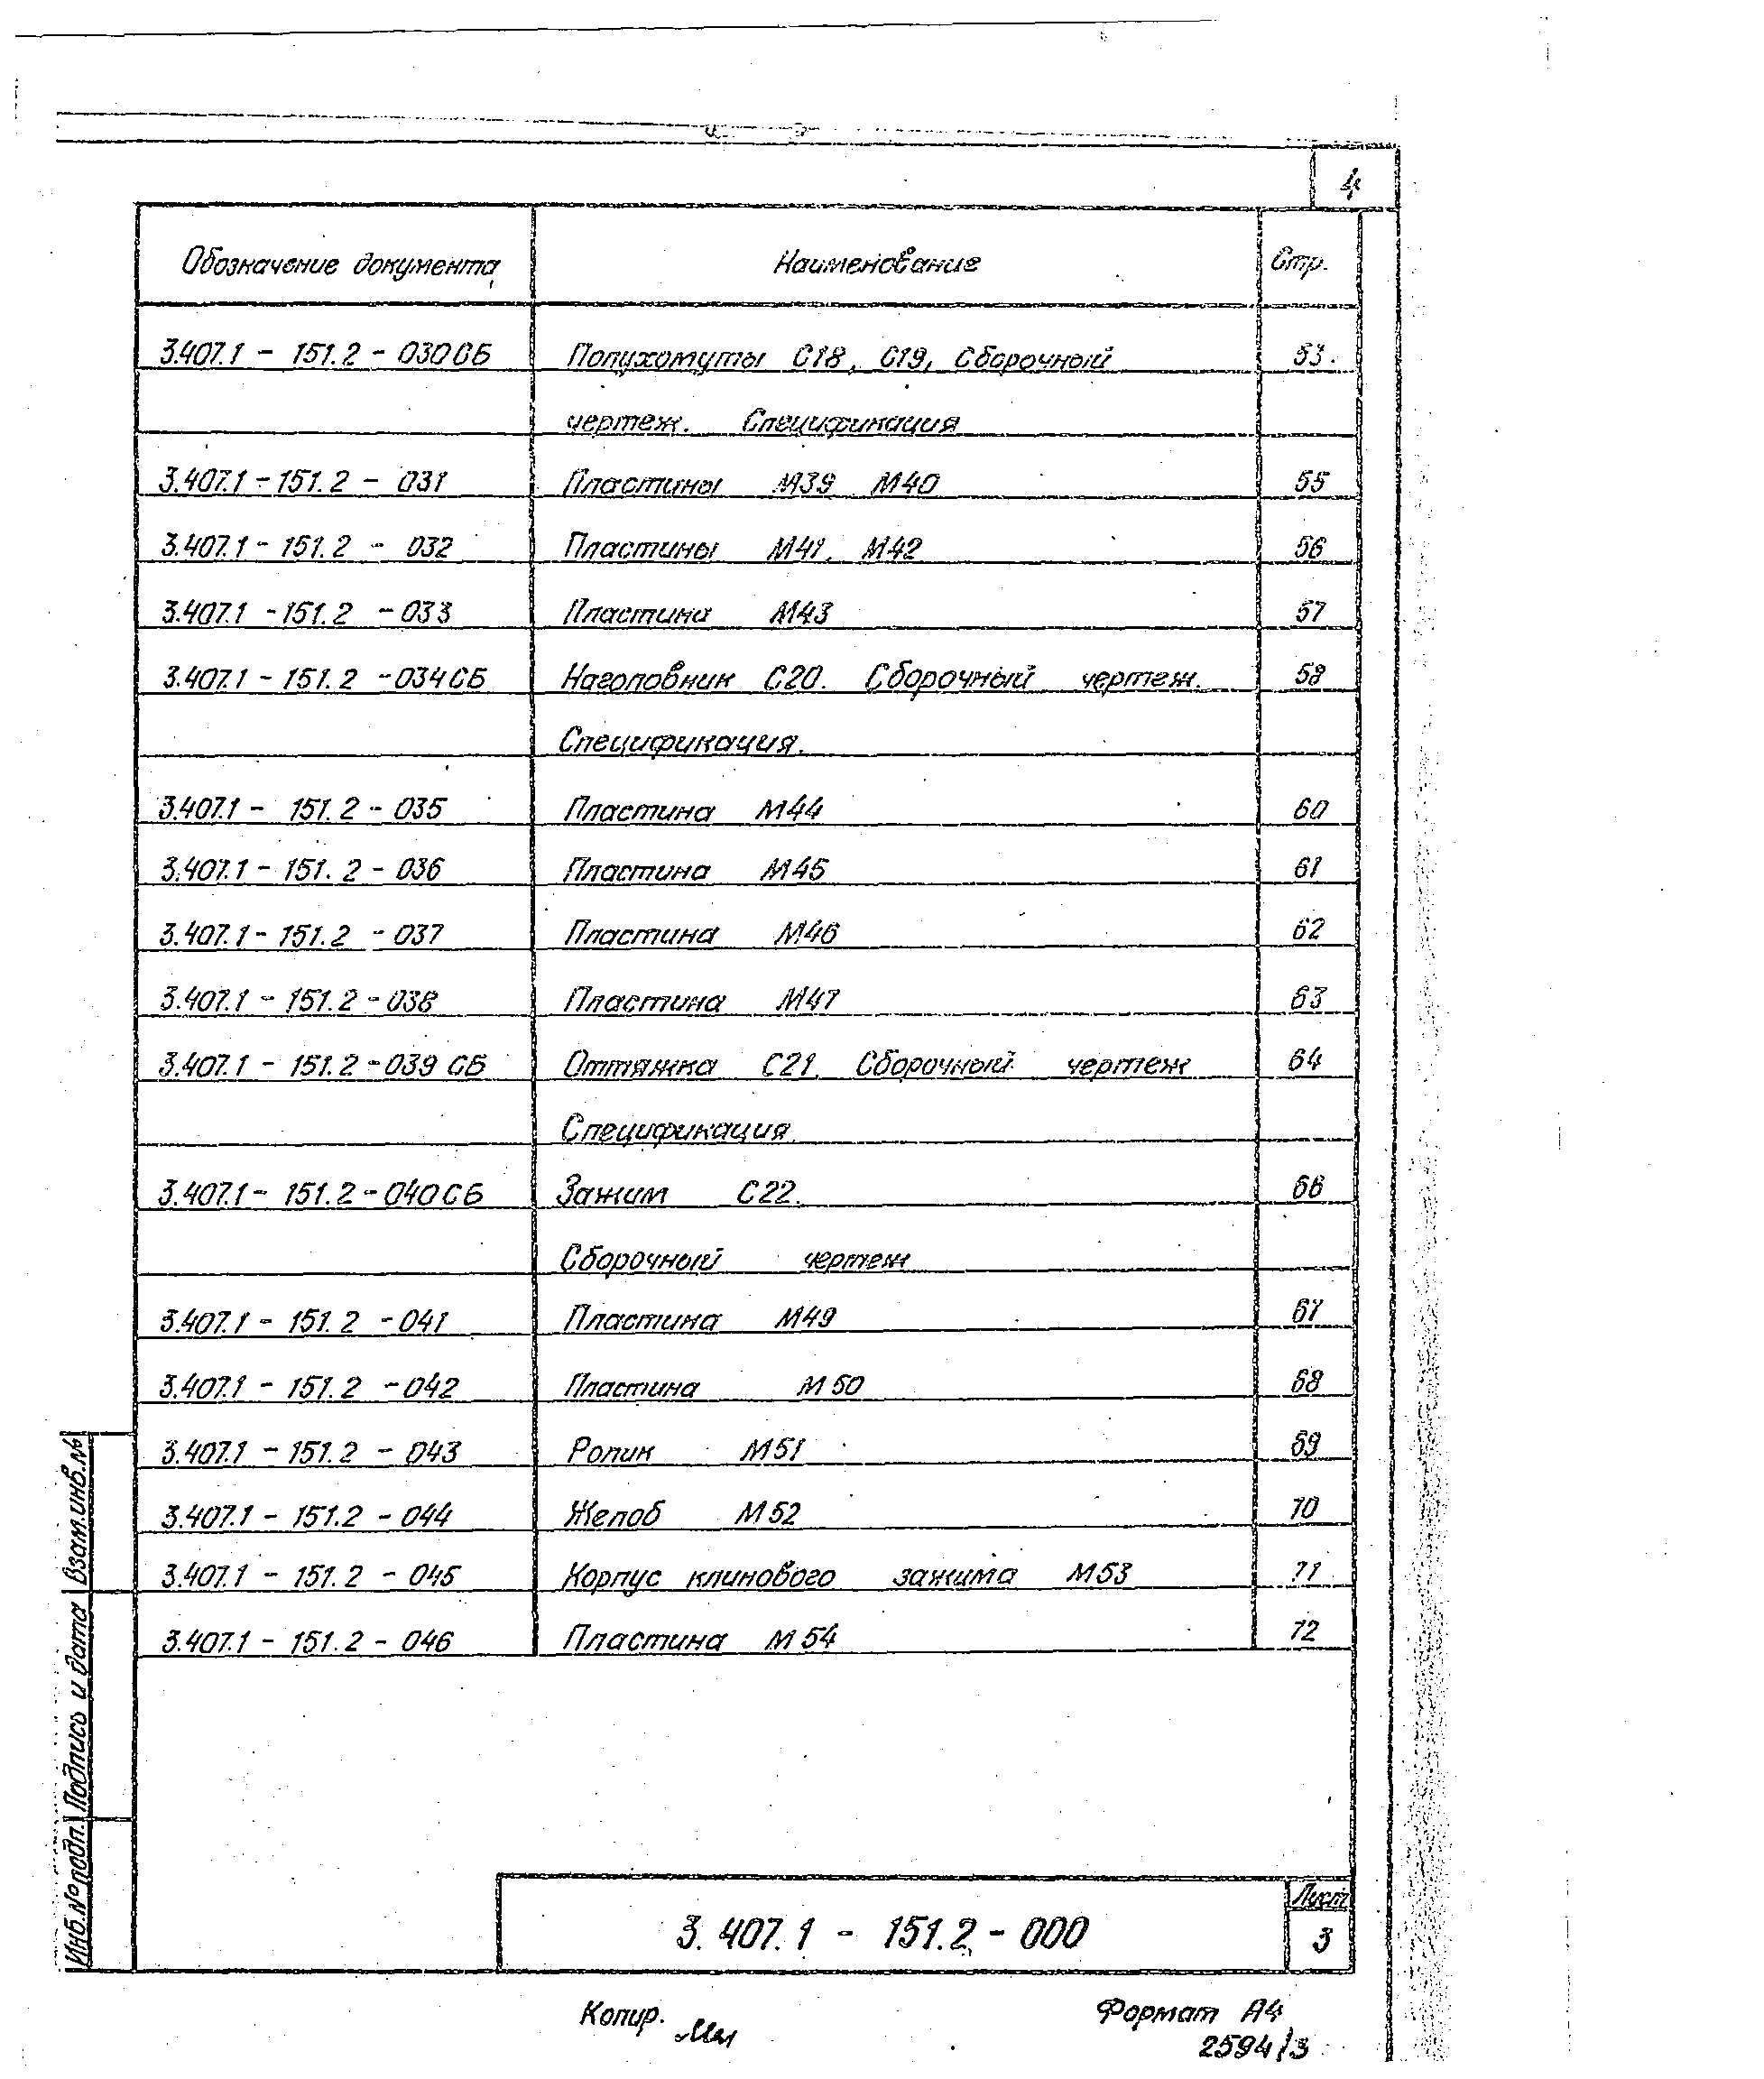 4
Обозначение документа Наименование Стр.
3.407.1 - 151.2 - 030СБ Полухомуты С18, С19, Сборочный 53
чертеж. Спецификация
3.407.1 - 151.2 - 031 Пластины М39 М40 55
3.407.1 - 151.2 - 032 Пластины М41, М42 56
3.407.1 - 151.2 - 033 Пластина М43 57
3.407.1 - 151.2 - 034СБ Наголовник С20. Сборочный чертеж. 58
Спецификация.
3.407.1 - 151.2 - 035 Пластина М44 60
3.407.1 - 151.2 - 036 Пластина М45 61
3.407.1 - 151.2 - 037 Пластина М46 62
3.407.1 - 151.2 - 038 Пластина М47 63
3.407.1 - 151.2 - 039 СБ Оттяжка С21. Сборочный чертеж 64
Спецификация.
3.407.1 - 151.2 - 040СБ Зажим С22. 66
Сборочный чертеж
3.407.1 - 151.2 - 041 Пластина М49 67
3.407.1 - 151.2 - 042 Пластина М50 68
3.407.1 - 151.2 - 043 Ролик М51 69
3.407.1 - 151.2 - 044 Желоб М52 70
3.407.1 - 151.2 - 045 Корпус клинового зажима М53 71
3.407.1 - 151.2 - 046 Пластина М54 72
Взам.инв.№
Подпись и дата
Инв.№подл.
3.407.1 - 151.2 - 000
Лист
3
Копир.
Формат А4
2594/3